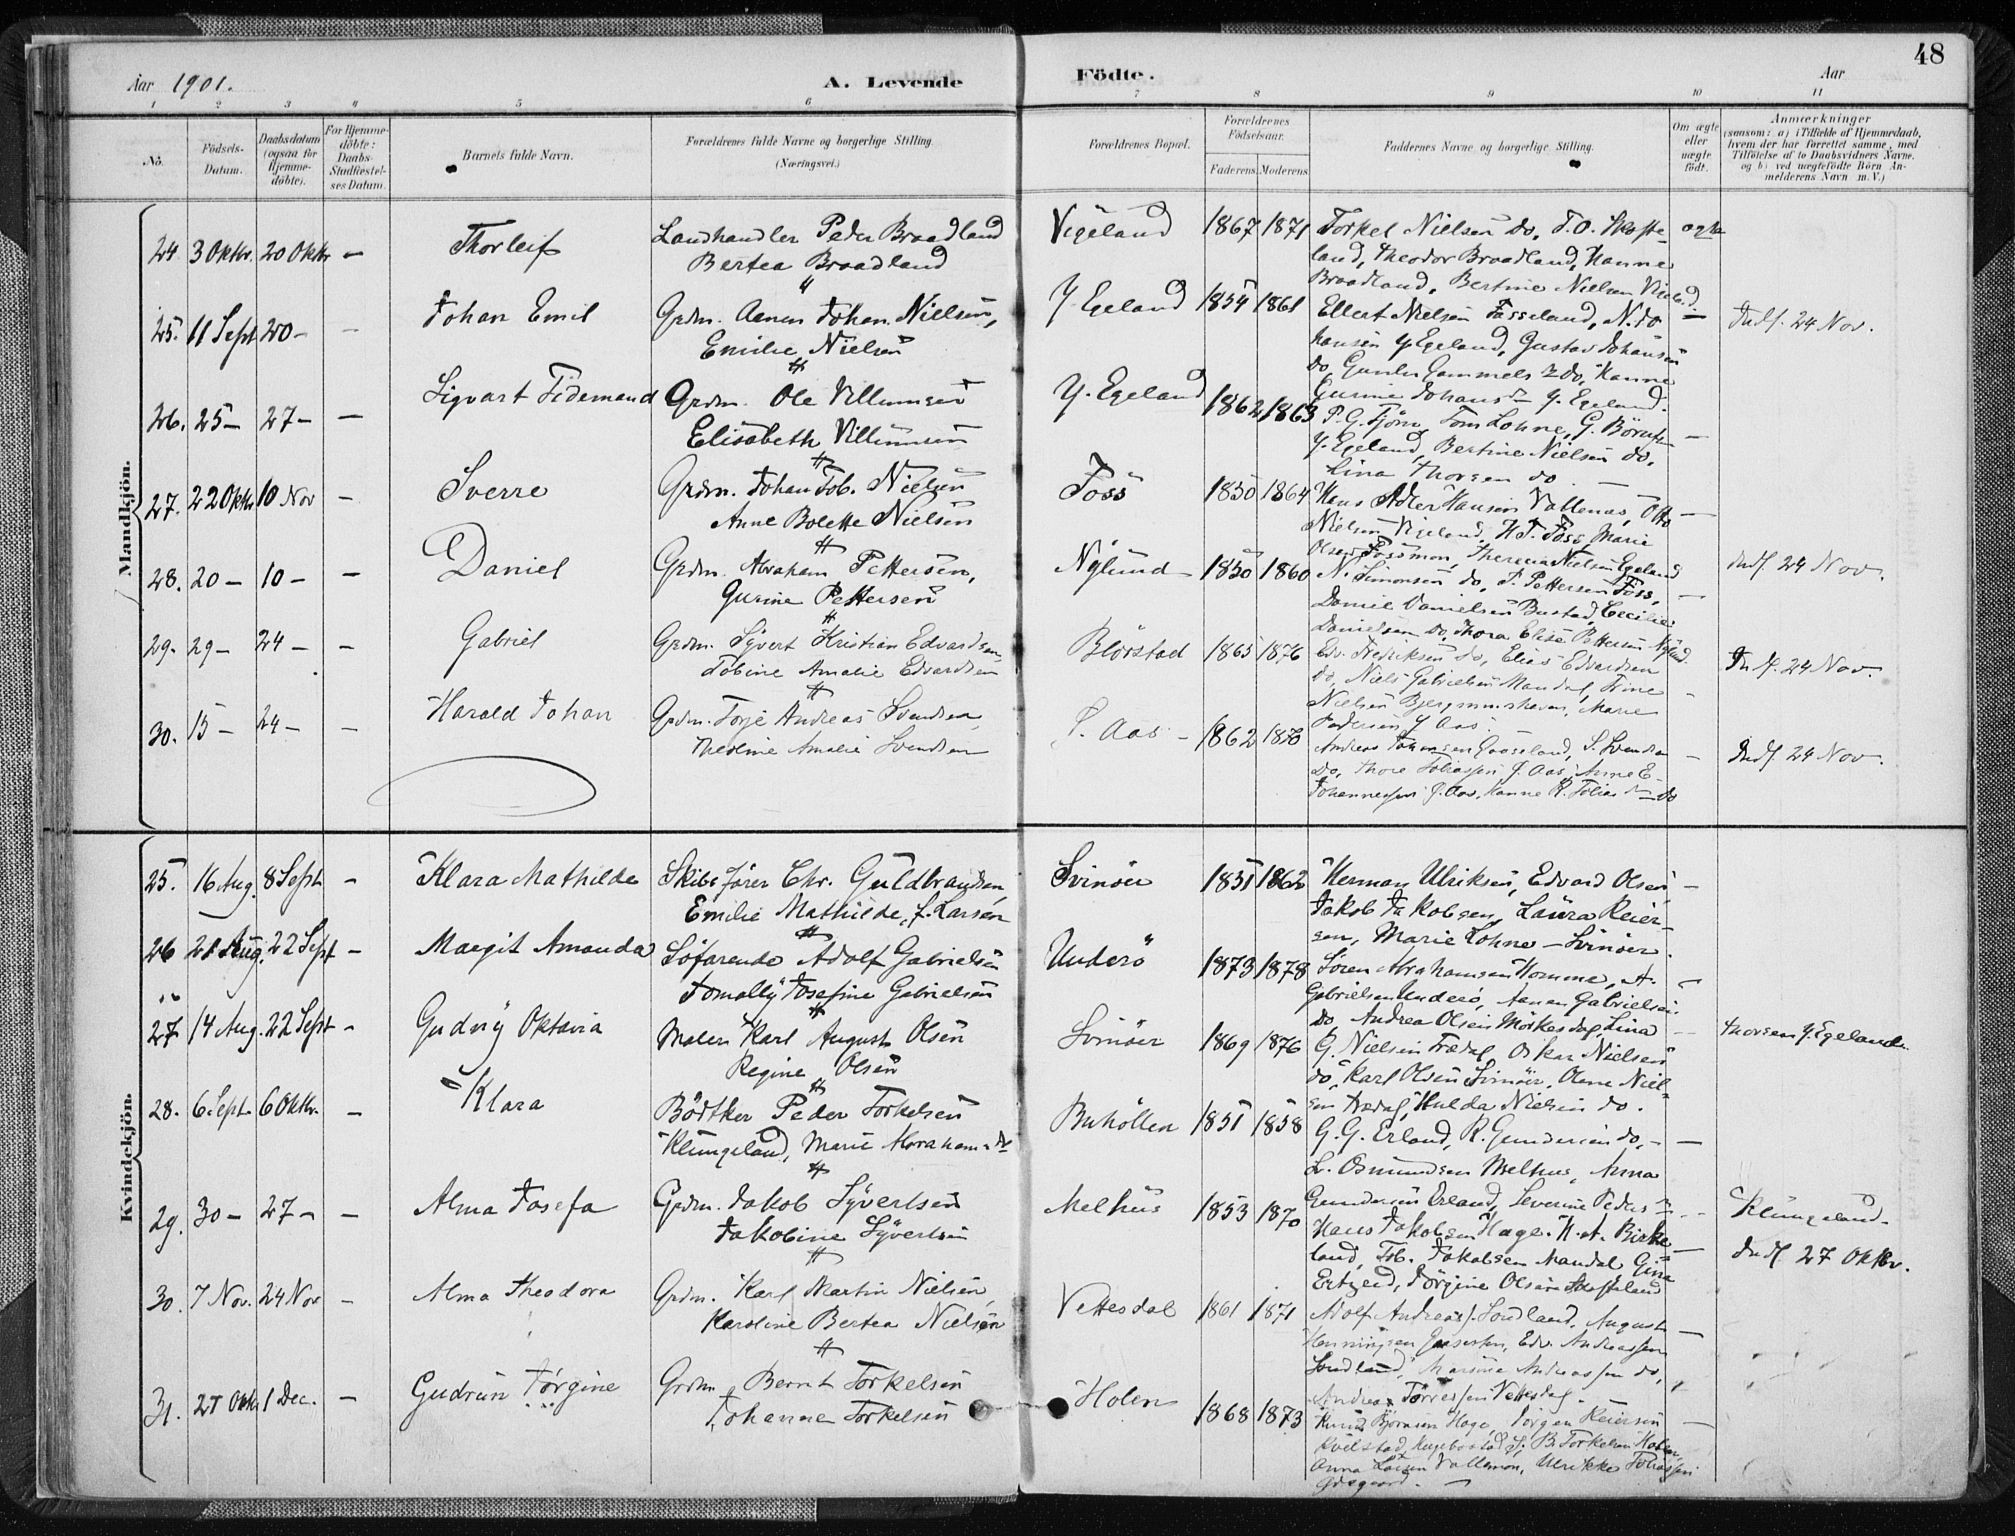 Aar 1901.
A. Levende
Födte.
Aar
48
1 2 3 4 5 6 7 8 9 10 11
No.
Födsels-Datum.
Daabsdatum (ogsaa for Hjemme-döbte).
For Hjemme-döbte: Daabs-Stadfæstel-ses Datum.
Barnets fulde Navn.
Forældrenes fulde Navne og borgerlige Stilling (Næringsvei.)
Forældrenes Bopæl.
Forældrenes Födselsaar.
Faderens. Moderens.
Faddernes Navne og borgerlige Stilling.
Om ægte eller uægte födt.
Anmærkninger
(saasom: a) i Tilfælde af Hjemmedaab, hvem der har forrettet samme, med Tilföielse af to Daabsvidners Navne, og b) ved uægtefödte Börn An-melderens Navn m. V.)
Mandkjön.
24 3 Oktbr. 20 Oktbr — Thorleif
Landhandler Peder Braadland
Bertea Braadland
Vigeland 1867 1871
Torkel Nielsen do, T.O. Skofte-
land, Theodor Braadland, Hanne
Braadland, Bertine Nielsen Vigeland
ægte
25. 11 Sept 20 — — Johan Emil
Grdm. Aanen Johan Nielsen,
Emilie Nielsen
Y. Egeland 1854 1861
Ellert Nielsen Fasseland, N. Jo
hansen Y. Egeland, Gustav Johansen
do, Gunder Gammels do, Hanne
Gurine Johans dr Y. Egeland.
Indf. 24 Nov.
26. 25 — 27 — — Sigvart Tidemand
Grdm. Ole Villumsen
Elisabeth Villumsen
Y. Egeland 1862 1863
P. G. Tjöm, Tom Lohne, G. Börufsen
Y. Egeland, Bertine Nielsen do,
Lina Thorsen do. —
27. 22 Oktbr 10 Nov — Sverre
Grdm. Johan Tob. Nielsen
Anne Bolette Nielsen
Foss 1850 1864
Hans Adler Hansen Vallenas, Otto
Nielsen Vigeland, H. T. Foss, Marie
Olsen Fossmon, Theresia Nielsen Egeland
28. 20 — 10 — — Daniel
Grdm. Abraham Pettersen,
Gurine Pettersen
Nylund 1850 1860
N. Simonsen do, P. Pettersen Foss,
Daniel Danielsen Bustad, Cecilie
Danielsen do, Thora Elise Pettersen Nylund.
Indf 24 Nov.
29. 29 — 24 — — Gabriel
Grdm. Syvert Kristian Edvardsen,
Tobine Amalie Edvardsen
Blörstad 1865 1876
Edv. Fredriksen do, Elias Edvardsen
do, Niels Gabrielsen Mandal, Trine
Nielsen Bjergmunshavn, Marie
Pedersen Y Aas.
Indf. 24 Nov.
30. 15 — 24 — — Harald Johan
Grdm. Torje Andreas Svendsen,
Theoline Amalie Svendsen
Y. Aas — 1862 1870
Andreas Johansen Gaaseland, S. Svendsen
do, Thore Tobiassen Y. Aas, Anne E.
Johannessen Y. Aas, Hanne R. Tobias dr do
Indf. 24 Nov.
Kvindekjön.
25. 16 Aug. 8 Sept — Klara Mathilde
Skibsförer Chr. Guldbrandsen,
Emilie Mathilde, f. Larsen
Svinöer 1851 1862
Herman Ulriksen, Edvard Olsen,
Jakob Jakobsen, Laura Reier-
sen, Marie Lohne — Svinöer.
26 21 Aug. 22 Sept — Margit Amanda
Söfarende Adolf Gabrielsen
Tomally Josefine Gabrielsen
Underö 1873 1878
Sören Abrahamsen Homme, A.
Gabrielsen Underö, Aanen Gabrielsen
do, Andrea Olsen Mörkesdag, Lina
Thorsen Y. Egeland.
27 14 Aug. 22 Sept — Gudny Oktavia
Maler Karl August Olsen
Regine Olsen
Svinöer 1869 1876
G. Nielsen Trædal, Oskar Nielsen
do, Karl Olsen Svinöer, Olene Niel-
sen Trædal, Hulda Nielsen do.
28. 6 Sept 6 Oktbr. — Klara
Bödtker Peder Torkelsen
Klungeland, Marie Abrahams dr
Buhöllen 1851 1858
G. G. Erland, R. Gundersen do, —
L. Osmundsen Melhus, Anna
Gundersen Erland, Severine Peders dr
Klungeland.
29. 30 — 27 — — Alma Josefa
Grdm. Jakob Syvertsen
Jakobine Syvertsen
Melhus 1853 1870
Hans Jakobsen Hage, N. A. Birke
land, Tob. Jakobsen Mandal, Gina
Ertzeid, Jörgine Olsen Skofteland
Indf 27 Oktbr.
30. 7 Nov. 24 Nov — Alma Theodora
Grdm. Karl Martin Nielsen,
Karoline Bertea Nielsen
Vettesdal 1861 1871
Adolf Andreass. Sordland, August
Henningsen, Edv. Andreassen
Sordland, Marsine Andreassen do,
Andreas Törressen Vettesdal.
31. 27 Oktbr 1 Dec. — Gudrun Jörgine
Grdm. Bernt Torkelsen
Johanne Torkelsen
Holen 1868 1873
Knud Björnsen Hage, Jörgen Reiersen
Kvilstad, S. B. Torkelsen Holen,
Anna Larsen Vallemon, Ulrikke Tobiassen
Ödegaard. —